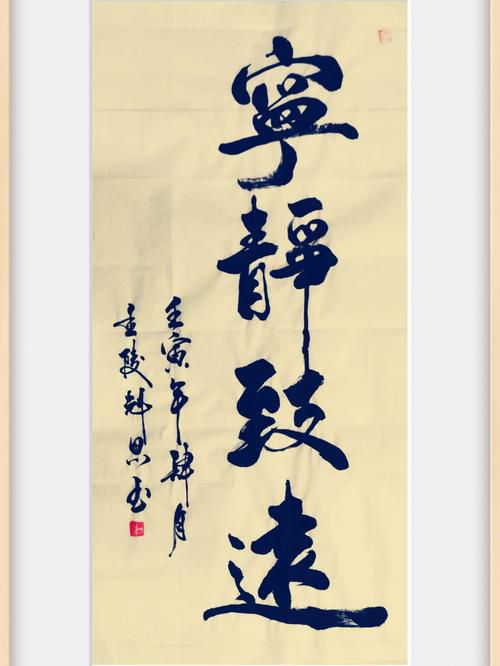 寧靜致遠
壬寅年肆月
金陵